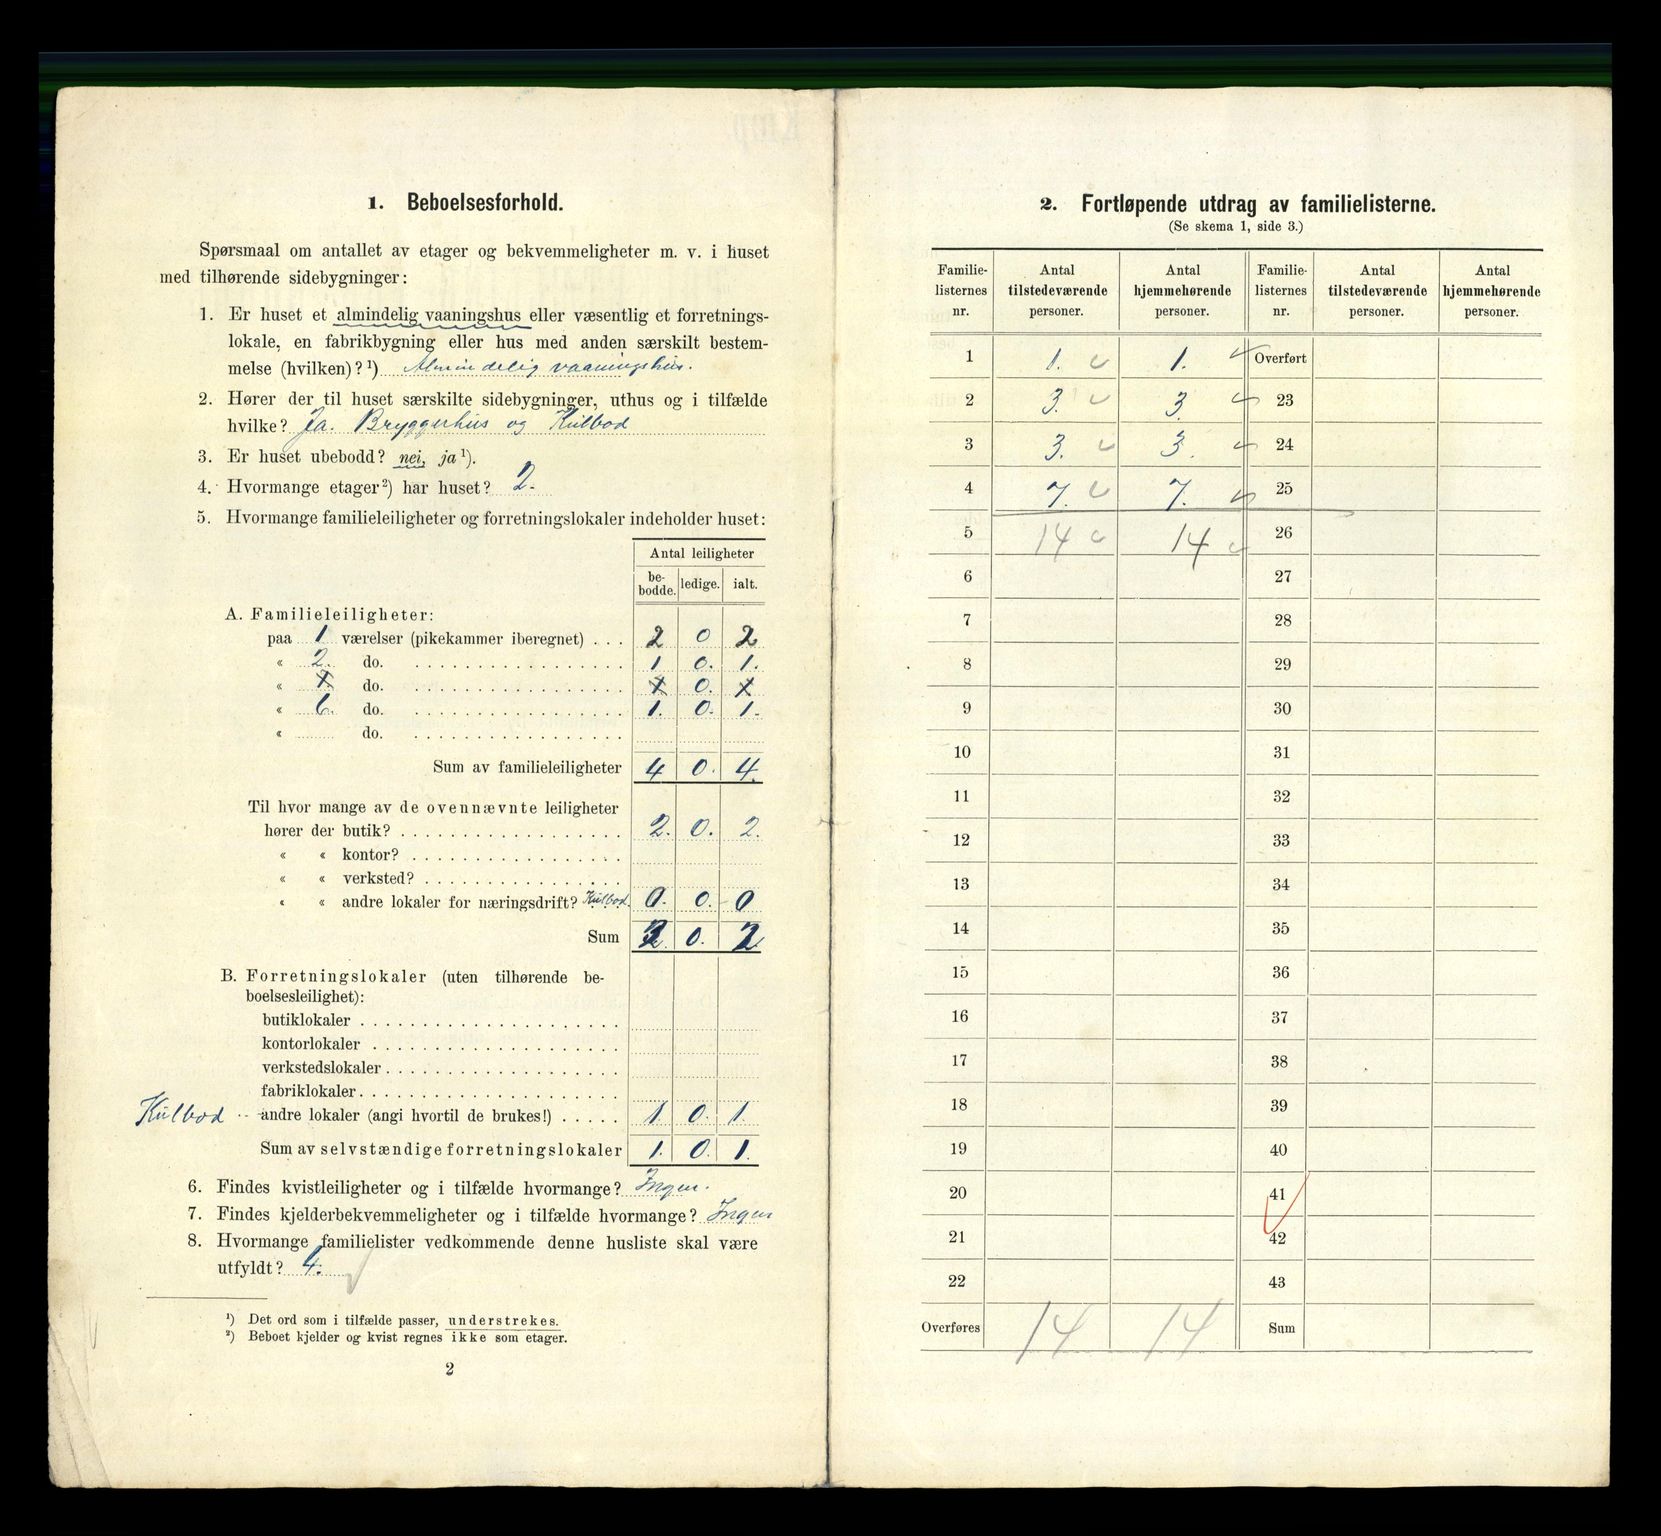 1. Beboelsesforhold.
Spørsmaal om antallet av etager og bekvemmeligheter m. v. i huset
med tilhørende sidebygninger:
1. Er huset et almindelig vaaningshus eller væsentlig et forretnings-
lokale, en fabrikbygning eller hus med anden særskilt bestem-
melse (hvilken)?¹) Almindelig vaaningshus.
2. Hører der til huset særskilte sidebygninger, uthus og i tilfælde
hvilke? Ja. Bryggerhus og Kulbod
3. Er huset ubebodd? nei, ja¹).
4. Hvormange etager²) har huset? 2.
5. Hvormange familieleiligheter og forretningslokaler indeholder huset:
Antal leiligheter
be-bodde. ledige. ialt.
A. Familieleiligheter:
paa 1 værelser (pikekammer iberegnet) . . . 2 0 2
« 2. do. 1 0. 1.
« 1. do. 1 0. 1
« 6. do. 1. 0. 1.
« do.
Sum av familieleiligheter 4 0. 4.
Til hvor mange av de ovennævnte leiligheter
hører der butik? 2. 0. 2.
« « kontor?
« « verksted?
« « andre lokaler for næringsdrift? Kulbod. 0. 0. 0
Sum 2. 0. 2
B. Forretningslokaler (uten tilhørende be-
boelsesleilighet):
butiklokaler
kontorlokaler
verkstedslokaler
fabriklokaler
Kulbod andre lokaler (angi hvortil de brukes!) 1. 0. 1.
Sum av selvstændige forretningslokaler 1. 0. 1.
6. Findes kvistleiligheter og i tilfælde hvormange? Ingen.
7. Findes kjelderbekvemmeligheter og i tilfælde hvormange? Ingen
8. Hvormange familielister vedkommende denne husliste skal være
utfyldt? 4.
¹) Det ord som i tilfælde passer, understrekes.
²) Beboet kjelder og kvist regnes ikke som etager.
2
2. Fortløpende utdrag av familielisterne.
(Se skema 1, side 3.)
Familie- Antal Antal Familie- Antal Antal
listernes tilstedeværende hjemmehørende listernes tilstedeværende hjemmehørende
nr. personer. personer. nr. personer. personer.
1 1. 1. Overført
2 3. 3. 23
3 3. 3. 24
4 7. 7. 25
5 14 14 26
6 27
7 28
8 29
9 30
10 31
11 32
12 33
13 34
14 35
15 36
16 37
17 38
18 39
19 40
20 41
21 42
22 43
Overføres 14 14 Sum